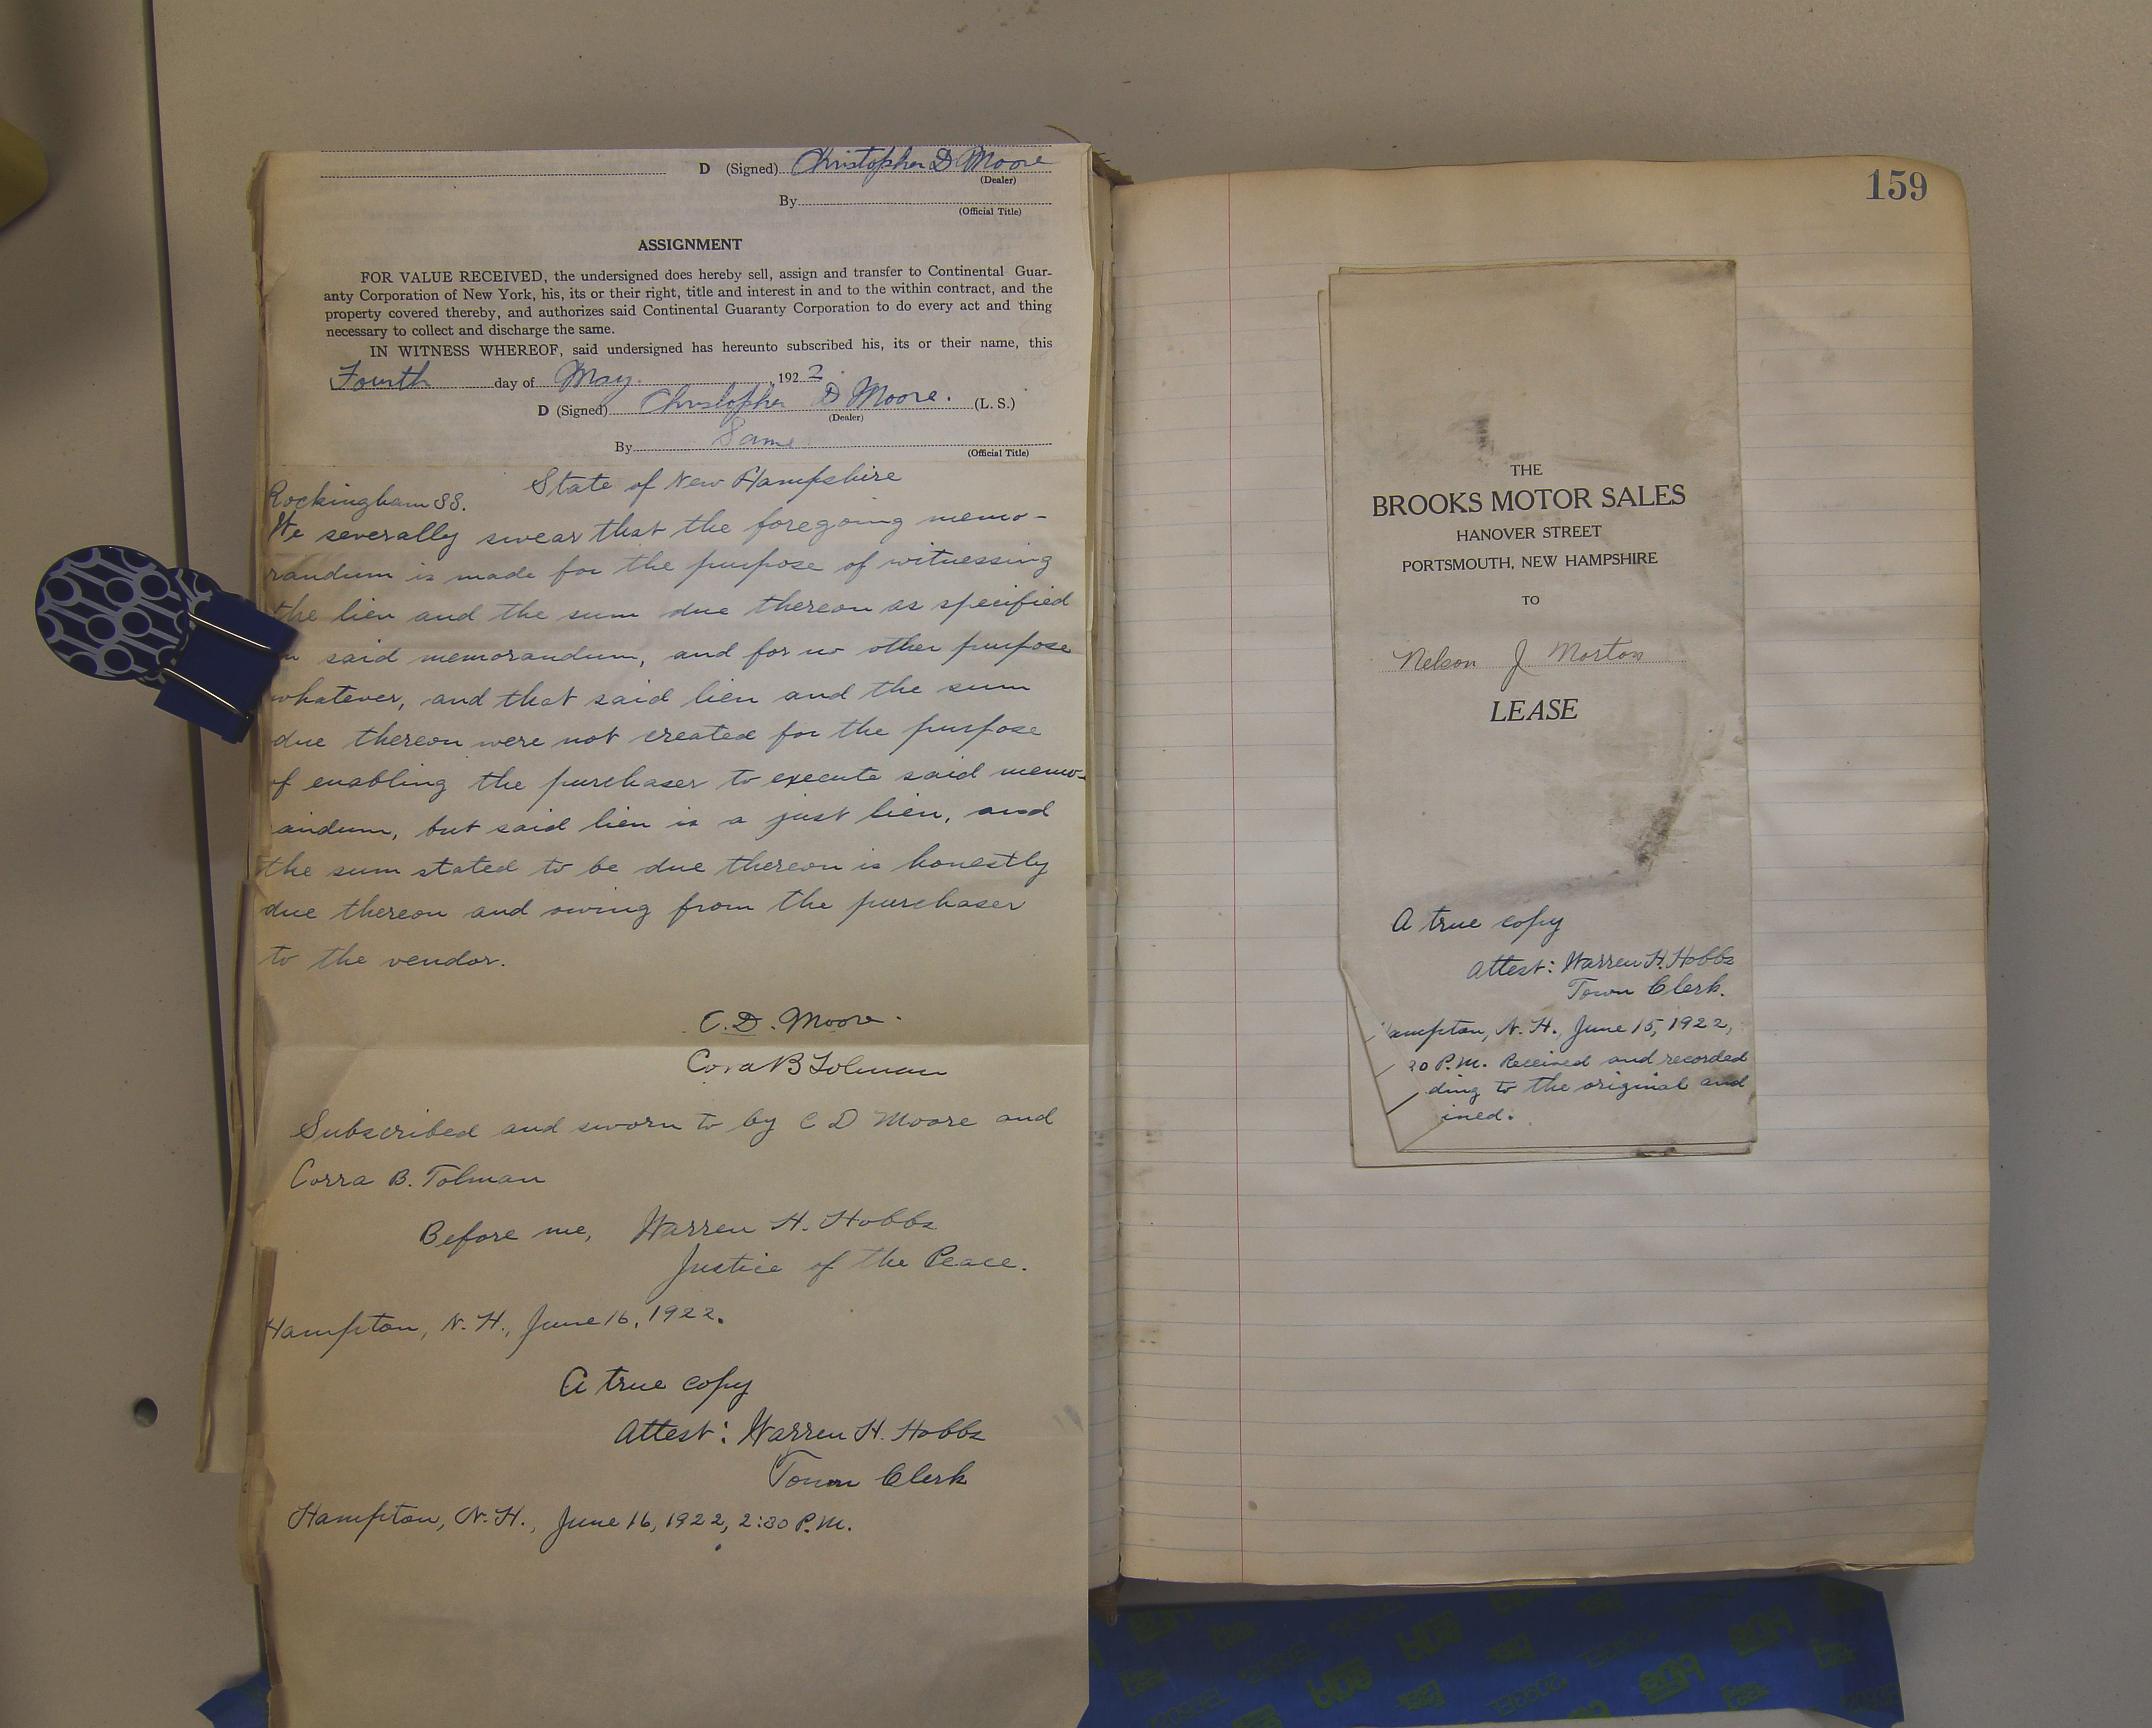 D (Signed) Christopher D Moore
(Dealer)
By
(Official Title)
ASSIGNMENT
FOR VALUE RECEIVED, the undersigned does hereby sell, assign and transfer to Continental Guar-
anty Corporation of New York, his, its or their right, title and interest in and to the within contract, and the
property covered thereby, and authorizes said Continental Guaranty Corporation to do every act and thing
necessary to collect and discharge the same.
IN WITNESS WHEREOF, said undersigned has hereunto subscribed his, its or their name, this
Fourth day of May. , 192 2.
D (Signed) Christopher D Moore. (L. S.)
(Dealer)
By Same
(Official Title)
State of New Hampshire
Rockingham SS.
We severally swear that the foregoing memo-
randum is made for the purpose of witnessing
the lien and the sum due thereon as specified
n said memorandum, and for no other purpose
whatever, and that said lien and the sum
due thereon were not created for the purpose
of enabling the purchaser to execute said memo-
andum, but said lien is a just lien, and
the sum stated to be due thereon is honestly
due thereon and owing from the purchaser
to the vendor.
C. D. Moore.
Cora B Tolman
Subscribed and sworn to by C D Moore and
Corra B. Tolman
Before me, Warren H. Hobbs
Justice of the Peace.
Hampton, N. H., June 16, 1922.
A true copy
Attest: Warren H. Hobbs
Town Clerk
Hampton, N. H., June 16, 1922, 2:30 P.M.
159
THE
BROOKS MOTOR SALES
HANOVER STREET
PORTSMOUTH, NEW HAMPSHIRE
TO
Nelson J. Morton
LEASE
A true copy
Attest: Warren H. Hobbs
Town Clerk.
ampton, N. H., June 15, 1922,
30 P.M. Received and recorded
ding to the original and
ined.